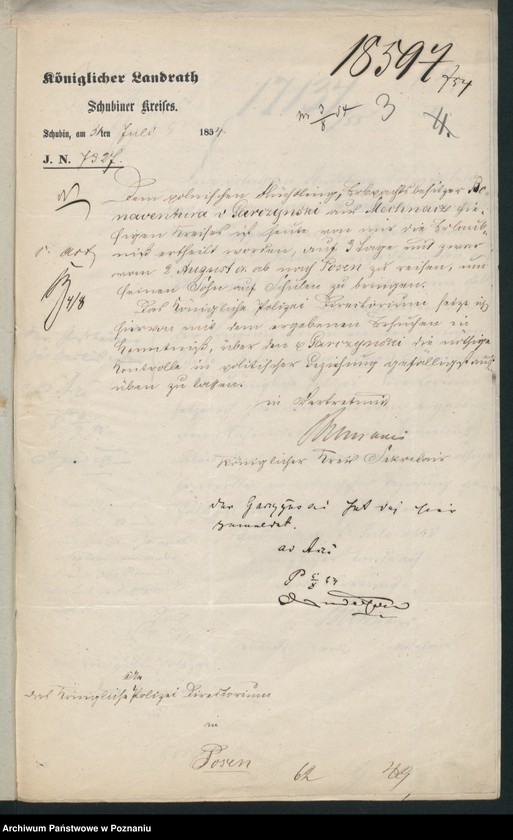 18597
/54
Königlicher Landrath
Schubiner Kreises.
3
4.
Schubin, am 31ten Juli 1854.
J. N. 7327.
Dem polnischen Flüchtling, Erbpachtsbesitzer Bo-
naventura v Garczynski aus Mechnacz hie-
sigen Kreises ist heute von mir die Erlaub-
niß ertheilt worden, auf 3 Tage und zwar
vom 2 August c. ab nach Posen zu reisen, um
seinen Sohn auf Schulen zu bringen.
Das Königliche Polizei Directorium setze ich
hiervon mit dem ergebenen Ersuchen in
Kenntniß, über den v Garczynski die nöthige
Kontrolle in politischer Beziehung gefälligst aus-
üben zu lassen.
4/8
in Vertretung
Königlicher Kreis Sekretair
der Garczynski hat sich hier
gemeldet.
ad Acta
P
An
das Königliche Polizei Directorium
in
Posen
62
49
Archiwum Państwowe w Poznaniu